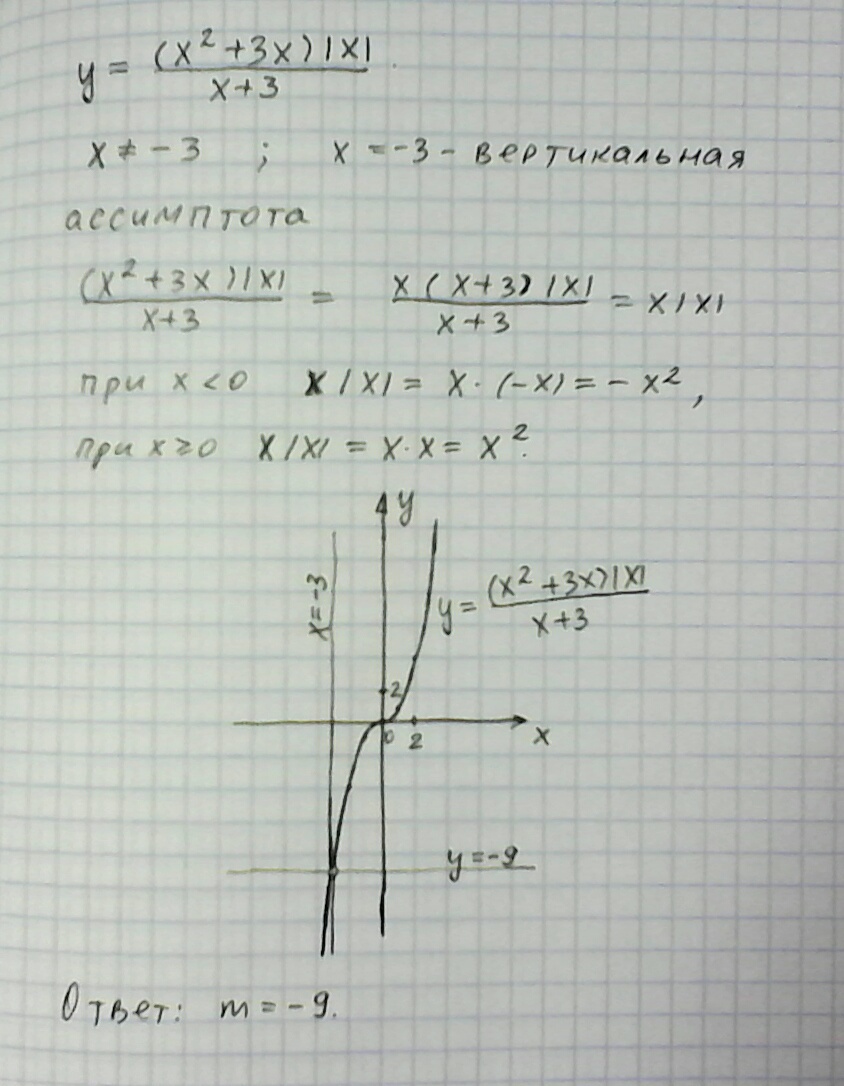 y = (x² + 3x)|x| / x+3
x ≠ -3 ; x = -3 - вертикальная
ассимптота
(x² + 3x)|x| / x+3 = x(x+3)|x| / x+3 = x|x|
при x < 0 x|x| = x·(-x) = -x²,
при x ≥ 0 x|x| = x·x = x².
y
x = -3
y = (x² + 3x)|x| / x+3
2
0 2 x
y = -9
Ответ: m = -9.